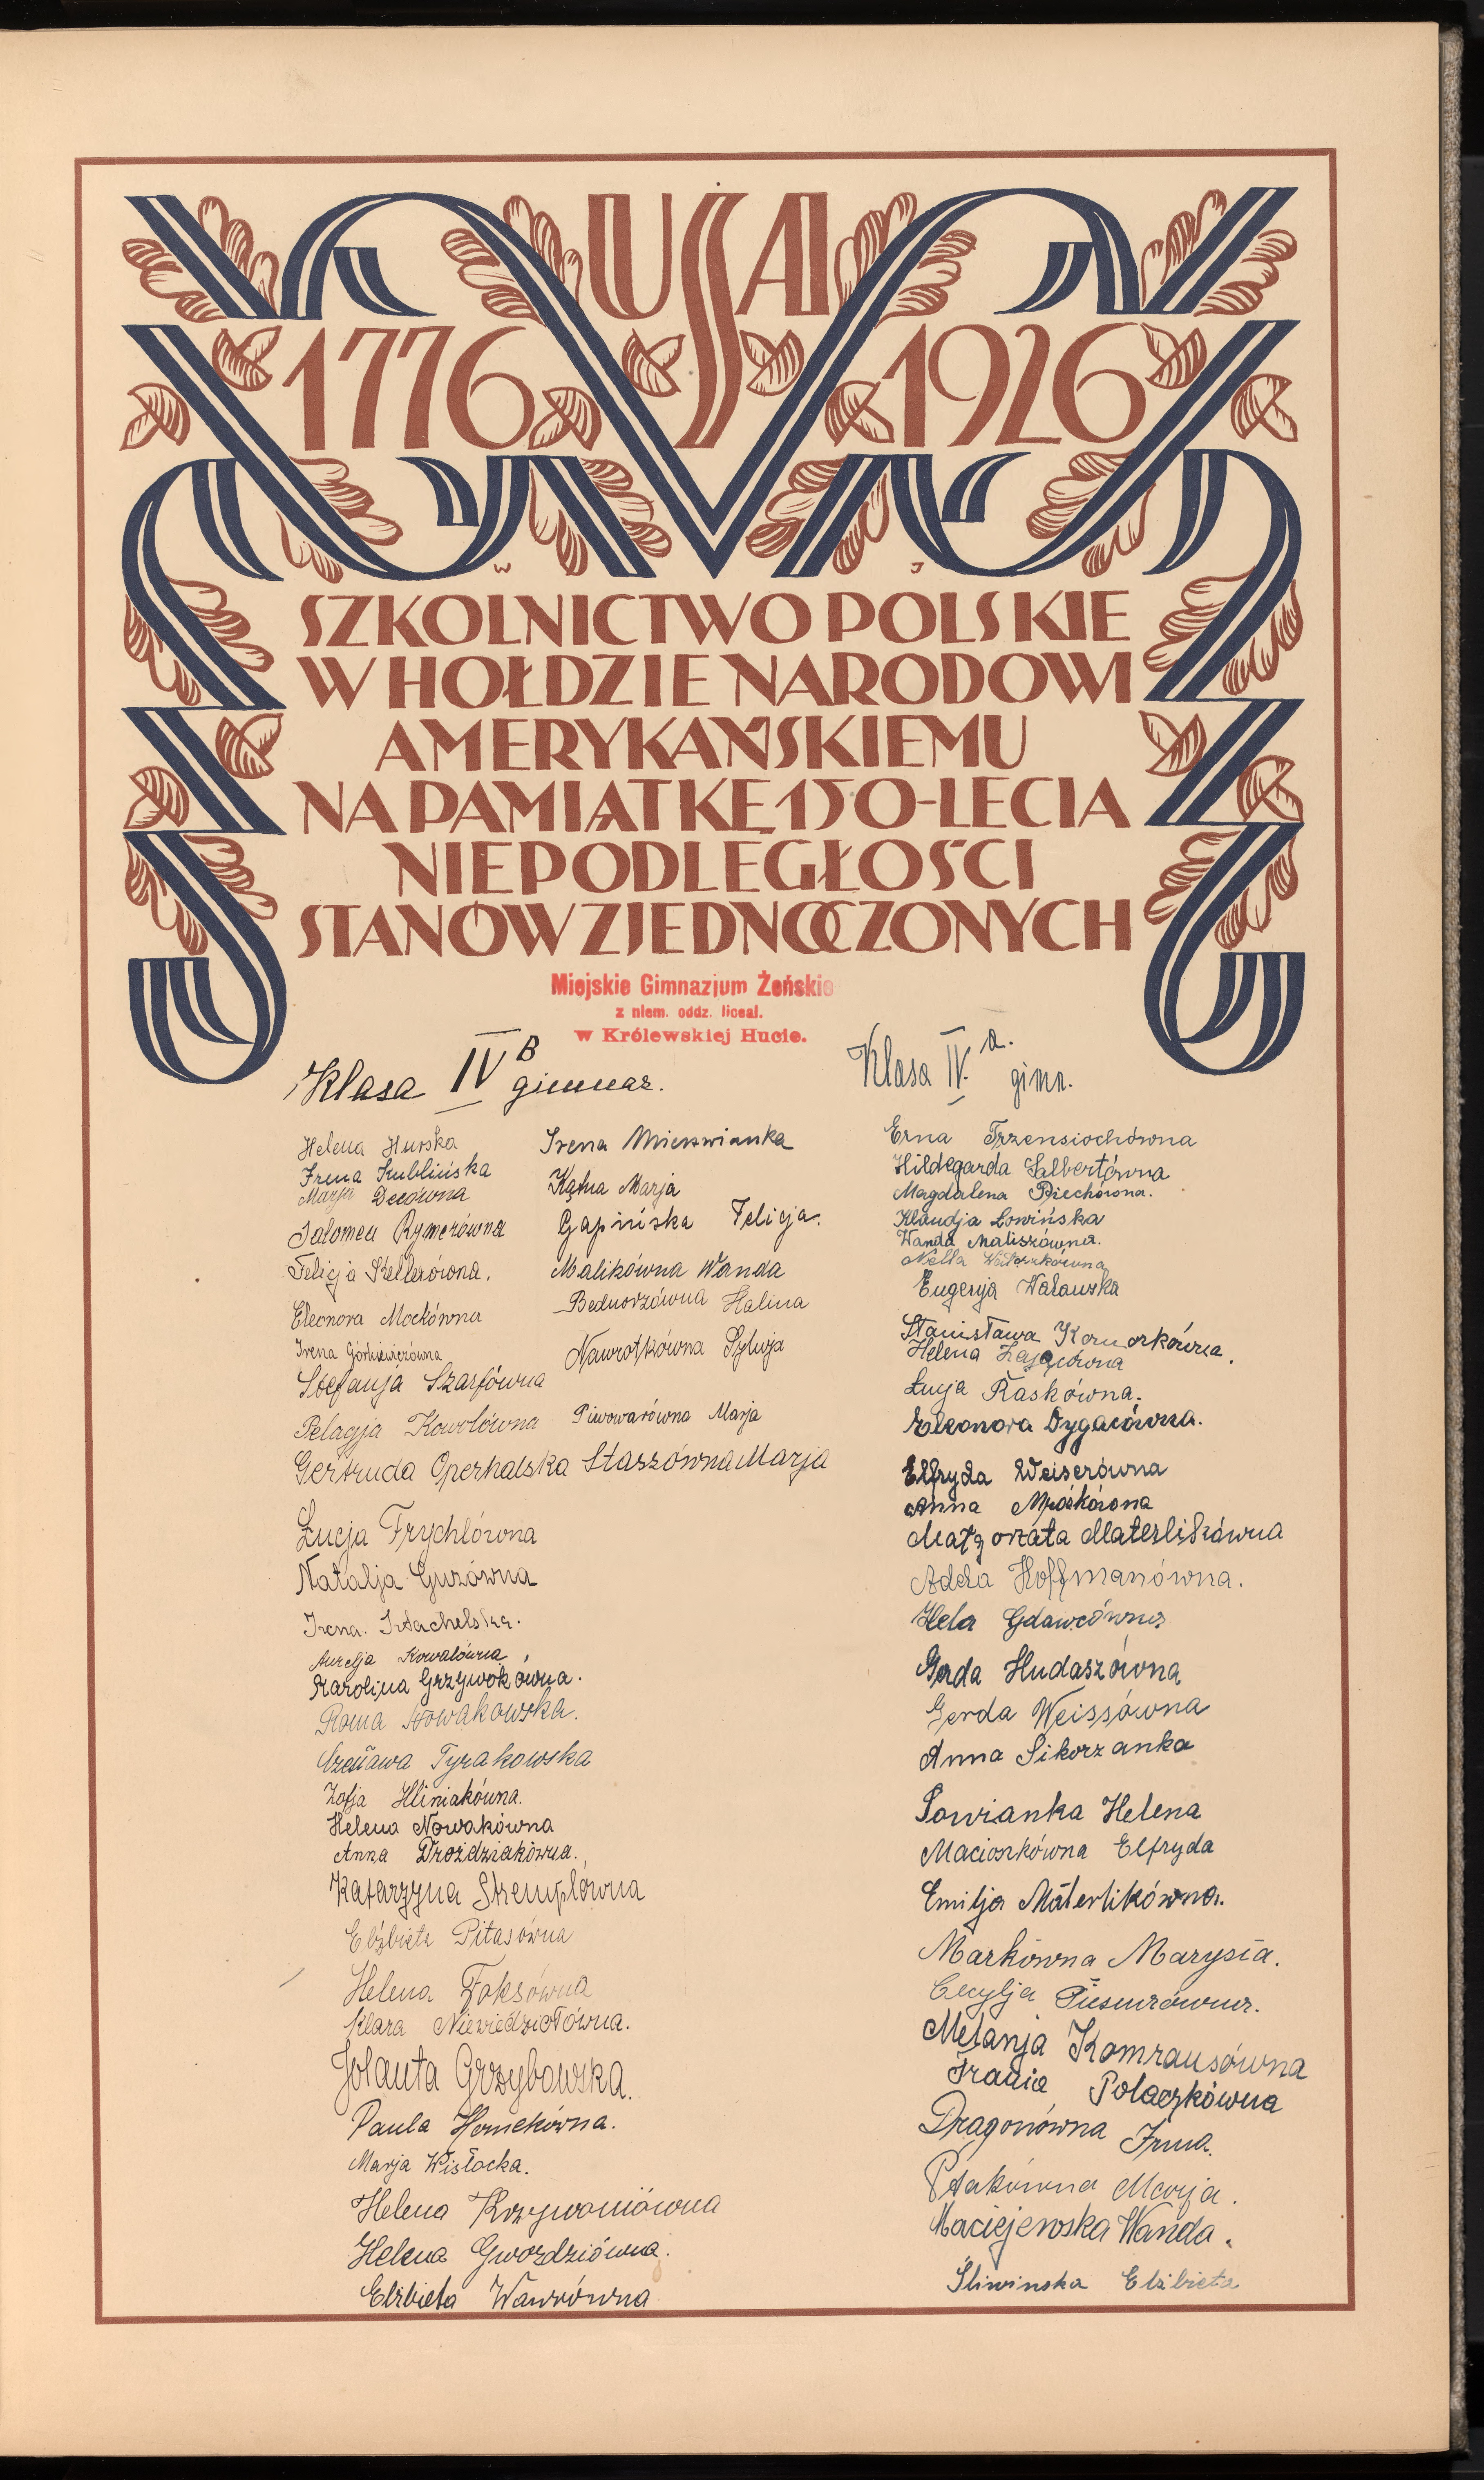 USA
1776 1926
W J
SZKOLNICTWO POLSKIE
W HOŁDZIE NARODOWI
AMERYKAŃSKIEMU
NA PAMIĄTKĘ 150-LECIA
NIEPODLEGŁOŚCI
STANÓW ZJEDNOCZONYCH
Miejskie Gimnazjum Żeńskie
z niem. oddz. liceal.
w Królewskiej Hucie.
Klasa IV B
Helena
Irena Kublińska
Marja Decówna
Salomea Rymerówna
Felicja Kellerówna.
Eleonora Mockówna
Irena
Stefanja Szarfówna
Pelagja Kowolówna
Gertruda Operhalska
Łucja Frychlówna
Natalja Guzówna
Irena
Aurelja Kowalówna
Karolina Grzywokówna.
Roma Nowakowska.
Tyrakowska
Zofja Hliniakówna.
Helena Nowakówna
Anna Droździakówna.
Katarzyna Stremplówna
Elżbieta Pitasówna
Helena Foksówna
Klara Niewiedziołówna.
Jolanta Grzybowska.
Paula Homekówna.
Marja Wisłocka.
Helena Krzywoniówna
Helena Gwoździówna.
Elżbieta Wawrówna
Irena
Kątna Marja
Gapińska Felicja.
Malikówna Wanda
Bednorzówna Halina
Nawrotkówna Sylwja
Piwowarówna Marja
Staszówna Marja
Klasa IV. a. gimn.
Erna Trzensiochówna
Hildegarda Salbertówna
Magdalena Piechówna.
Klaudja Łowińska
Wanda Maliszówna.
Nella
Eugenja Watawska
Stanisława Komorkówna.
Helena Zającówna
Łucja Raskówna.
Eleonora Dygaczówna.
Elfryda Weiserówna
Anna Mrózkówna
Małgorzata Materlikówna
Adela Hoffmanówna.
Hela Gdawcówna
Gerda Hudaszówna
Gerda Weissówna
Anna Sikorzanka
Sowianka Helena
Macioszkówna Elfryda
Emilja Materlikówna.
Markówna Marysia.
Cecylja
Melanja Komrausówna
Frania Polaczkówna
Dragonówna Irma.
Ptakówna Marja.
Maciejewska Wanda.
Śliwinska Elżbieta